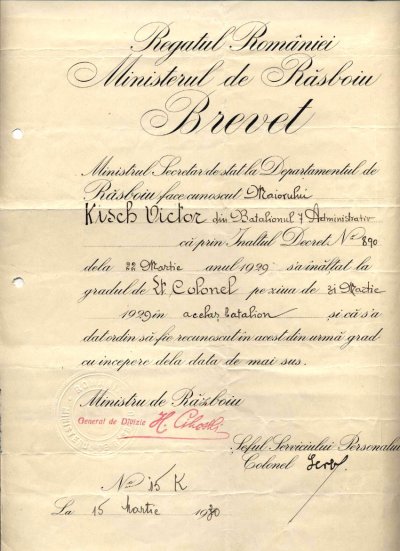 Regatul României
Ministerul de Răsboiu
Brevet
Ministrul Secretar de stat la Departamentul de
Răsboiu face cunoscut Maiorului
Kisch Victor din Batalionul 7 Administrativ
că prin Înaltul Decret No 890
dela 22 Martie anul 1929 s'a înălțat la
gradul de Lt. Colonel pe ziua de 31 Martie
1929 in acelaș batalion și că s'a
dat ordin să fie recunoscut in acest din urmă grad
cu incepere dela data de mai sus.
Ministru de Războiu
General de Divizie H. Cihoski
Șeful Serviciului Personalului
Colonel
No 15 K
La 15 Martie 1930